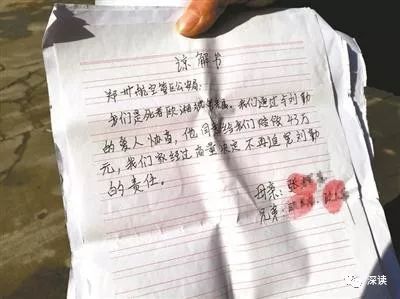 谅解书
郑州航空管区公安局:
我们是死者欧湘 家属。我们通过与刘勤
的家人协商,他同意给我们赔偿43万
元,我们家经过商量决定不再追究刘勤
的责任。
母亲:张
兄弟:
深读